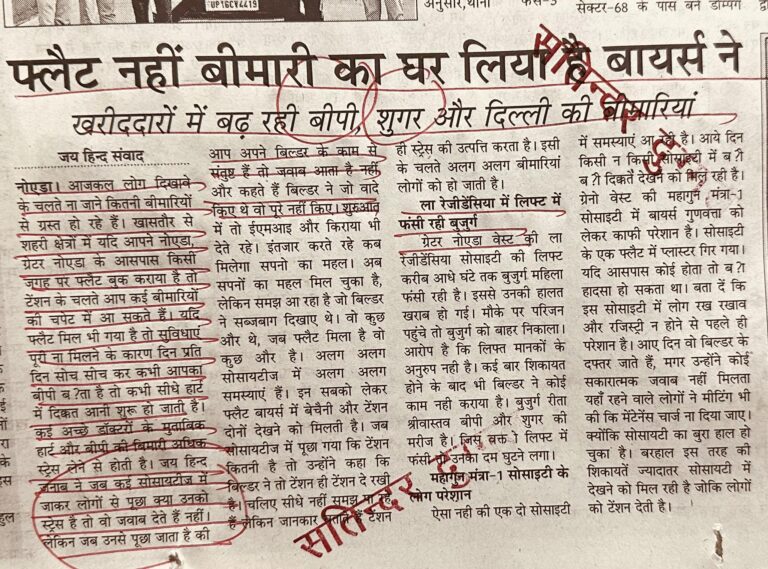 UP16CW4419
अनुसार,थाना
फेस-3
सेक्टर-68 के पास बने डम्पिंग
फ्लैट नहीं बीमारी का घर लिया है बायर्स ने
खरीददारों में बढ़ रही बीपी, शुगर और दिल्ली की बीमारियां
जय हिन्द संवाद
नोएडा। आजकल लोग दिखावे
के चलते ना जाने कितनी बीमारियों
से ग्रस्त हो रहे हैं। खासतौर से
शहरी क्षेत्रों में यदि आपने नोएडा,
ग्रेटर नोएडा के आसपास किसी
जगह पर फ्लैट बुक कराया है तो
टेंशन के चलते आप कई बीमारियों
की चपेट में आ सकते हैं। यदि
फ्लैट मिल भी गया है तो सुविधाएं
पूरी ना मिलने के कारण दिन प्रति
दिन सोच सोच कर कभी आपका
बीपी ब?ता है तो कभी सीधे हार्ट
में दिक्कत आनी शुरू हो जाती है।
कई अच्छे डॉक्टरों के मुताबिक
हार्ट और बीपी की बिमारी अधिक
स्ट्रेस लेने से होती है। जय हिन्द
जनाब ने जब कई सोसायटीज में
जाकर लोगों से पूछा क्या उनको
स्ट्रेस है तो वो जवाब देते हैं नहीं।
लेकिन जब उनसे पूछा जाता है की
आप अपने बिल्डर के काम से
संतुष्ट हैं तो जवाब आता है नहीं
और कहते हैं बिल्डर ने जो वादे
किए थे वो पूरे नहीं किए। शुरुआत
में तो ईएमआइ और किराया भी
देते रहे। इंतजार करते रहे कब
मिलेगा सपनो का महल। अब
सपनों का महल मिल चुका है,
लेकिन समझ आ रहा है जो बिल्डर
ने सब्जबाग दिखाए थे। वो कुछ
और थे, जब फ्लैट मिला है वो
कुछ और है। अलग अलग
सोसायटीज में अलग अलग
समस्याएं हैं। इन सबको लेकर
फ्लैट बायर्स में बेचैनी और टेंशन
दोनों देखने को मिलती है। जब
सोसायटीज में पूछा गया कि टेंशन
कितनी है तो उन्होंने कहा कि
बिल्डर ने तो टेंशन ही टेंशन दे रखी
है। चलिए सीधे नहीं समझ पा रहे
हैं लेकिन जानकार बताते हैं टेंशन
ही स्ट्रेस की उत्पत्ति करता है। इसी
के चलते अलग अलग बीमारियां
लोगों को हो जाती है।
ला रेजीडेंसिया में लिफ्ट में
फंसी रही बुजुर्ग
ग्रेटर नोएडा वेस्ट की ला
रेजीडेंसिया सोसाइटी की लिफ्ट
करीब आधे घंटे तक बुजुर्ग महिला
फंसी रही है। इससे उनकी हालत
खराब हो गई। मौके पर परिजन
पहुंचे तो बुजुर्ग को बाहर निकाला।
आरोप है कि लिफ्ट मानकों के
अनुरुप नही है। कई बार शिकायत
होने के बाद भी बिल्डर ने कोई
काम नही कराया है। बुजुर्ग रीता
श्रीवास्तव बीपी और शुगर की
मरीज है। लिफ्ट में
फंसी तो उनका दम घुटने लगा।
महागुन मंत्रा-1 सोसाइटी के
लोग परेशान
ऐसा नही की एक दो सोसाइटी
में समस्याएं आ रही है। आये दिन
किसी न किसी सोसाइटी में ब?ी
ब?ी दिक्कतें देखने को मिल रही है।
ग्रेनो वेस्ट की महागुन मंत्रा-1
सोसाइटी में बायर्स गुणवत्ता को
लेकर काफी परेशान है। सोसाइटी
के एक फ्लैट में प्लास्टर गिर गया।
यदि आसपास कोई होता तो ब?ा
हादसा हो सकता था। बता दें कि
इस सोसाइटी में लोग रख रखाव
और रजिस्ट्री न होने से पहले ही
परेशान है। आए दिन वो बिल्डर के
दफ्तर जाते हैं, मगर उन्होंने कोई
सकारात्मक जवाब नहीं मिलता
यहां रहने वाले लोगों ने मीटिंग भी
की कि मेंटेनेंस चार्ज ना दिया जाए।
क्योंकि सोसायटी का बुरा हाल हो
चुका है। बरहाल इस तरह की
शिकायतें ज्यादातर सोसायटी में
देखने को मिल रही है जोकि लोगों
को टेंशन देती है।
सतिन्दर
सतिन्दर